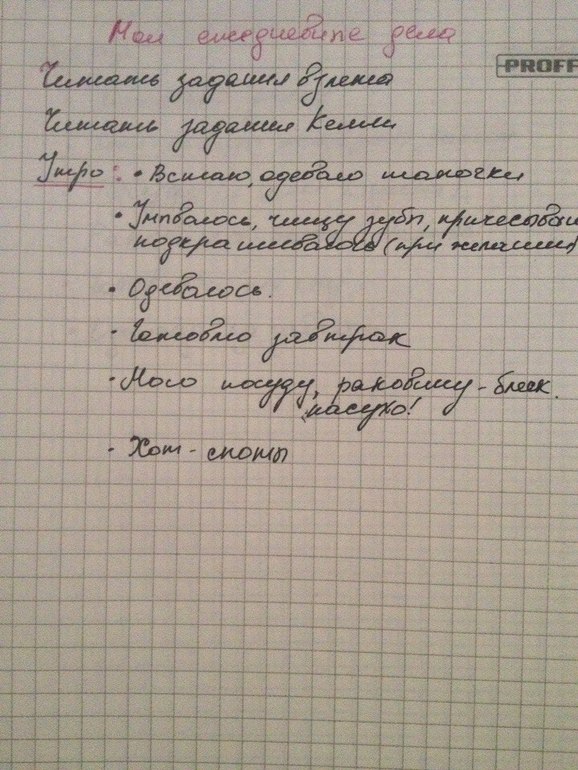 Мои ежедневные дела
PROFF
Читать задания взлета
Читать задания Келли
Утро: • Встаю, одеваю тапочки
• Умываюсь, чищу зубы, причесываю
подкрашиваюсь (при желании)
• Одеваюсь.
• Готовлю завтрак
• Мою посуду, раковину - блеск.
насухо!
• Хот-споты